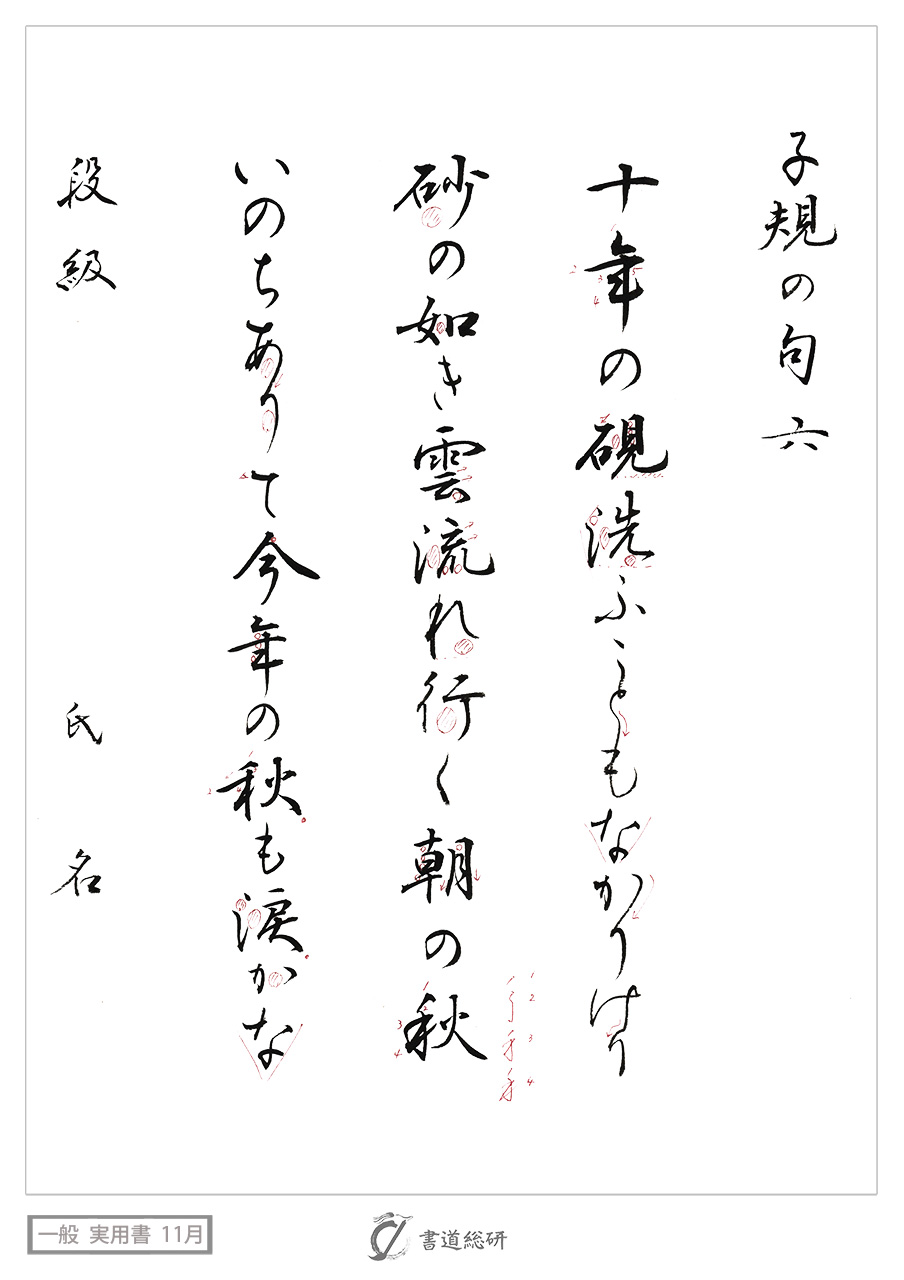 子規の句 六
十年の硯洗ふこともなかりけり
砂の如き雲流れ行く朝の秋
いのちありて今年の秋も涙かな
段級 氏名
一般 実用書 11月
書道総研